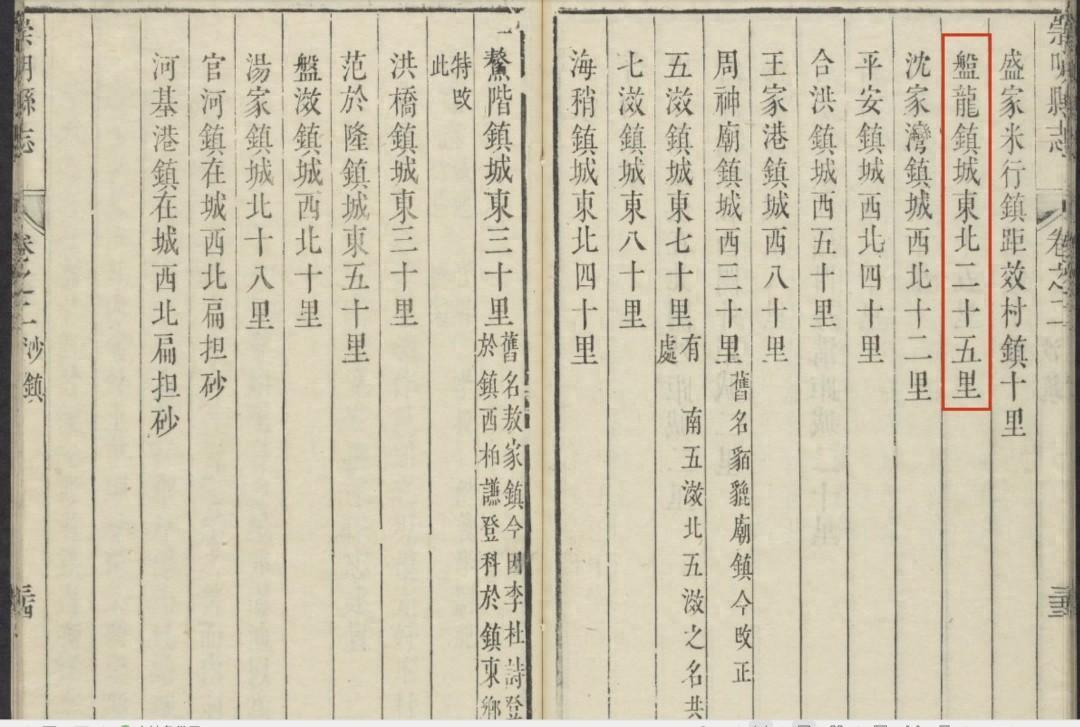 崇明縣志
卷之二
盛家米行鎮距效村鎮十里
盤龍鎮城東北二十五里
沈家灣鎮城西北十二里
平安鎮城西北四十里
合洪鎮城西五十里
王家港鎮城西八十里
周神廟鎮城西三十里舊名貊貔廟鎮今改正
五滧鎮城東七十里有南五滧北五滧之名共處
七滧鎮城東八十里
海稍鎮城東北四十里
鰲階鎮城東三十里舊名敖家鎮今因李杜詩登於鎮西柏謙登科於鎮東鄉
特改此
洪橋鎮城東三十里
范於隆鎮城東五十里
盤滧鎮城西北十里
湯家鎮城北十八里
官河鎮在城西北扁担砂
河基港鎮在城西北扁担砂
崇明縣志
卷之二
沙鎮